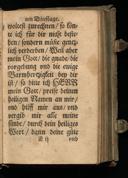 am Dinstage.
woltest zurechnen / so kön-
te ich für dir nicht beste-
hen / sondern müste gentz-
lich verderben / Weil aber
mein Gott / die gnade / die
vergebung und die ewige
Barmhertzigkeit bey dir
ist / so bitte ich HERR
mein Gott / preise deinen
heiligen Namen an mir /
und hilff mir aus / und
vergib mir alle meine
sünde / durch dein heiliges
Wort / dann deine güte
und